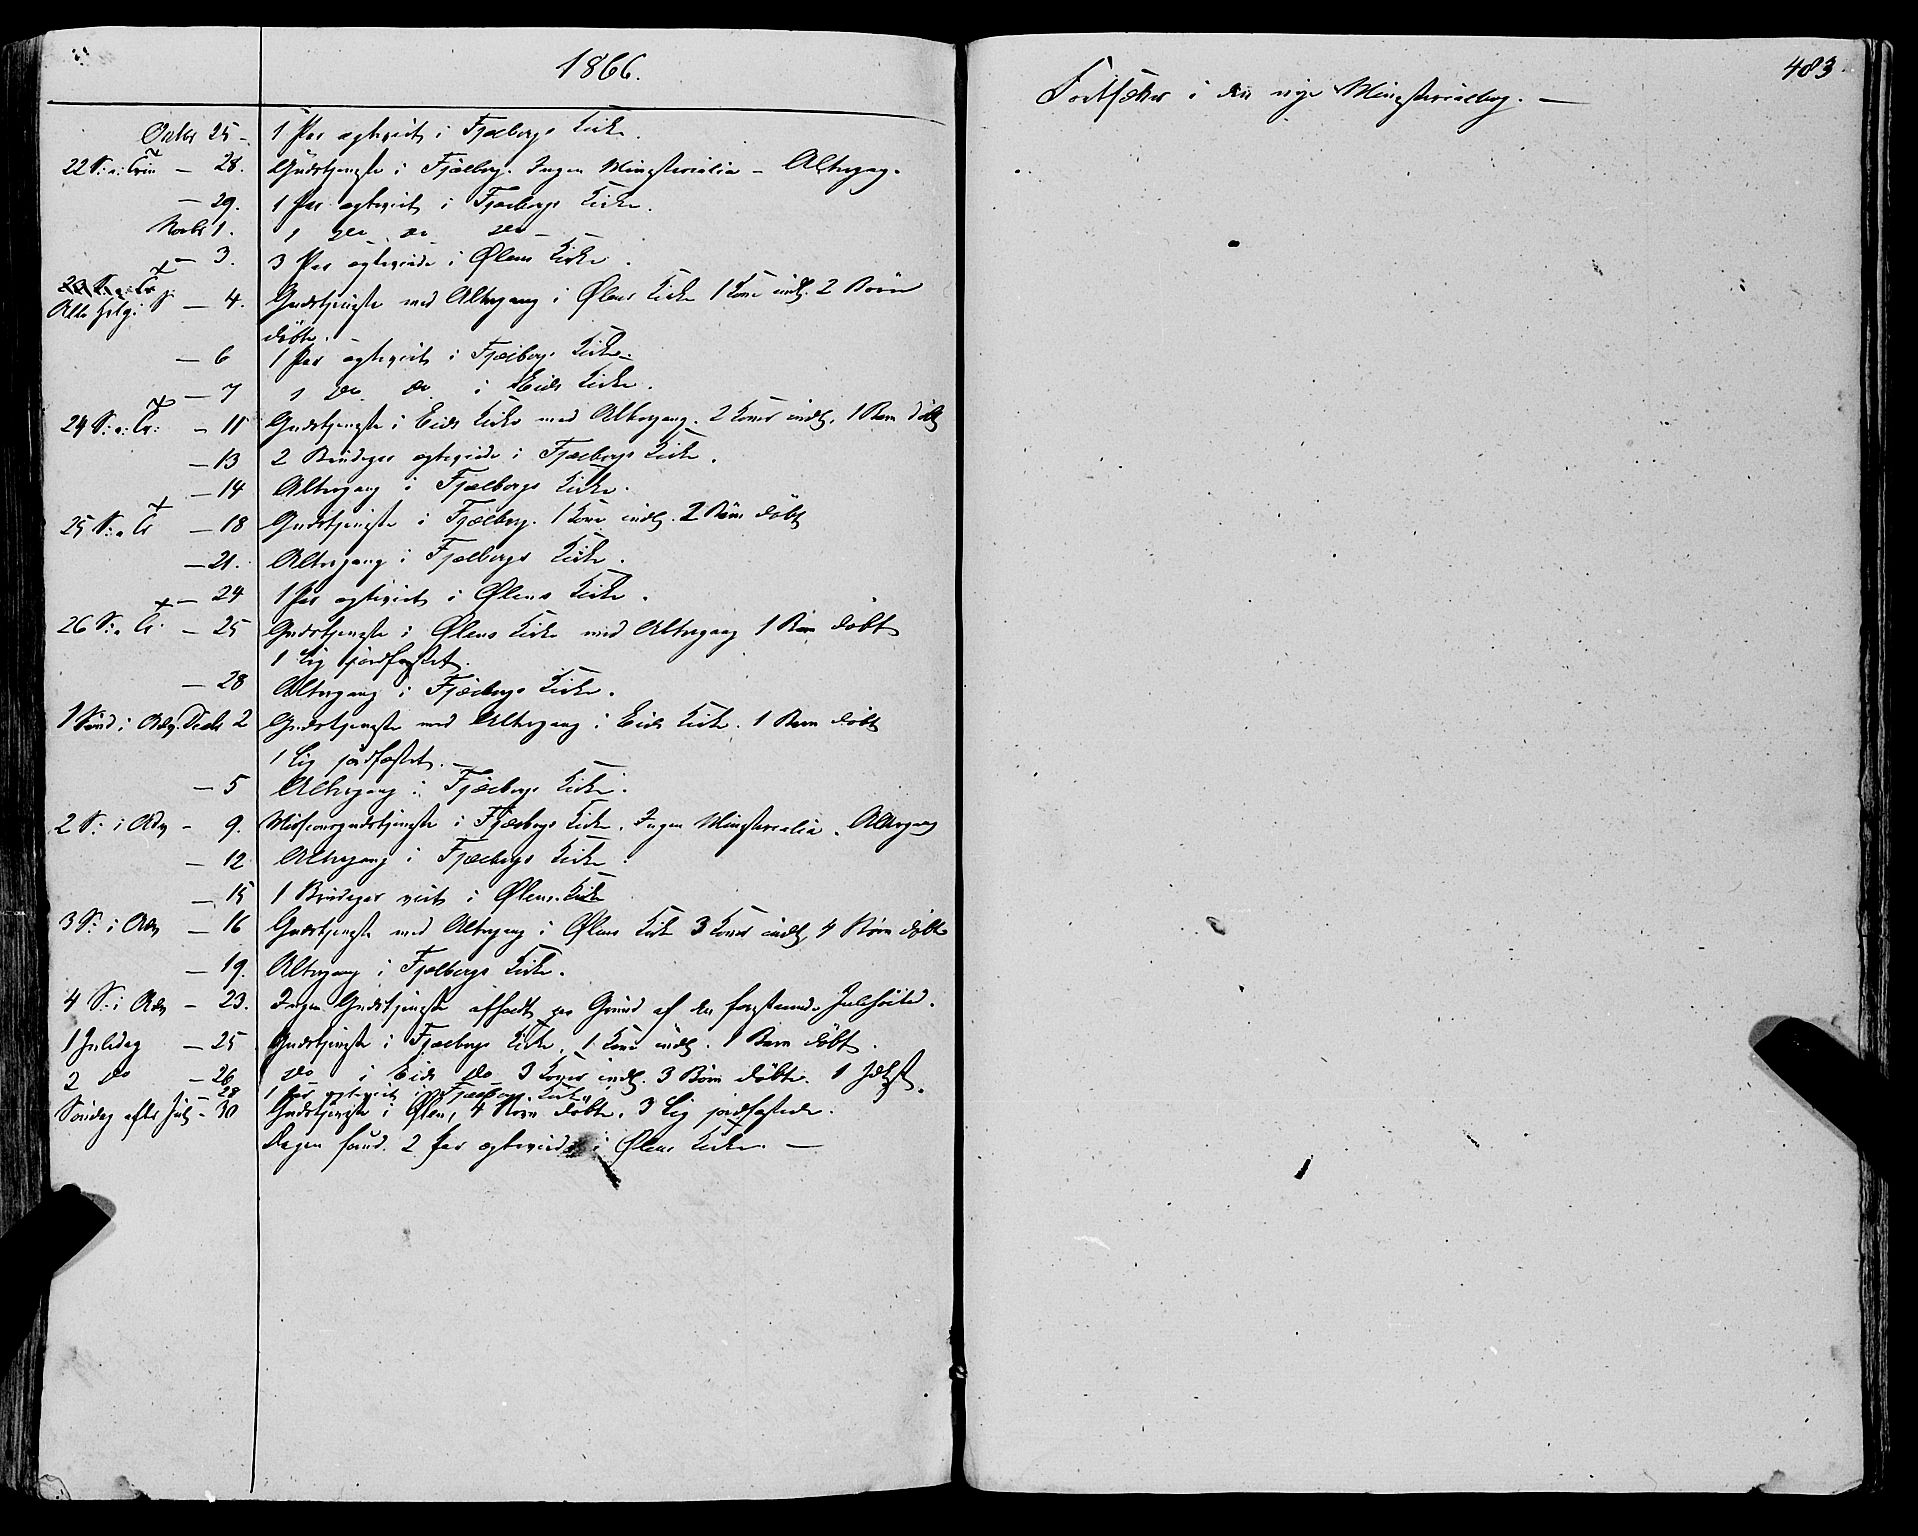 1866.
Octbr 25 - 1 Par egteviet i Fjelbergs Kirke.
22 S: a: Trin - 28. Gudstjeneste i Fjelberg. Ingen Ministerialia - Altergang.
- 29. 1 Par egteviet i Fjelbergs Kirke.
Novbr 1. 1 do do do -
- 3. 3 Par egteviede i Ølens Kirke.
Alle Helg: S - 4. Gudstjeneste med Altergang i Ølens Kirke 1 Kone indl. 2 Børn
døbte.
- 6 1 Par egteviet i Fjelbergs Kirke.
- 7 1 do do i Eids Kirke.
24 S: a: Tr: - 11 Gudstjeneste i Eids Kirke med Altergang. 2 Koner indl. 1 Barn døbt
- 13 2 Brudepar egteviede i Fjelbergs Kirke.
- 14 Altergang i Fjelbergs Kirke.
25 S: a Tr - 18 Gudstjeneste i Fjelberg. 1 Kone indl. 2 Børn døbt
- 21. Altergang i Fjelbergs Kirke.
- 24 1 Par egteviet i Ølens Kirke.
26 S: a Tr. - 25 Gudstjeneste i Ølens Kirke med Altergang 1 Barn døbt
1 Lig jordfæstet.
- 28 Altergang i Fjelbergs Kirke.
1 Sønd i Adv. Decbr 2 Gudstjeneste med Altergang i Eids Kirke. 1 Barn døbt
1 Lig jordfæstet. -
- 5 Altergang i Fjelbergs Kirke.
2 S: i Adv - 9. Missionsgudstjeneste i Fjelbergs Kirke. Ingen Ministerialia. Altergang
- 12 Altergang i Fjelbergs Kirke.
- 15 1 Brudepar viet i Ølens Kirke
3 S: i Adv - 16 Gudstjeneste med Altergang i Ølens Kirke 3 Koner indl. 4 Børn døbte
- 19. Altergang i Fjelbergs Kirke.
4 S: i Adv - 23. Ingen Gudstjeneste afholdt paa Grund af den forestaaende Julehøitid.
1 Juledag - 25 Gudstjeneste i Fjelbergs Kirke. 1 Kone indl. 1 Barn døbt.
2 do - 26 do i Eids do 3 Koner indl. 3 Børn døbte. 1 Jdfst.
- 28 1 Par egteviet i Fjelbergs Kirke
Søndag efter Jul - 30 Gudstjeneste i Ølen, 4 Børn døbte. 3 Lig jordfæstede.
Dagen forud. 2 Par egteviede i Ølens Kirke. -
483.
Fortsættes i den nye Ministerialbog. -